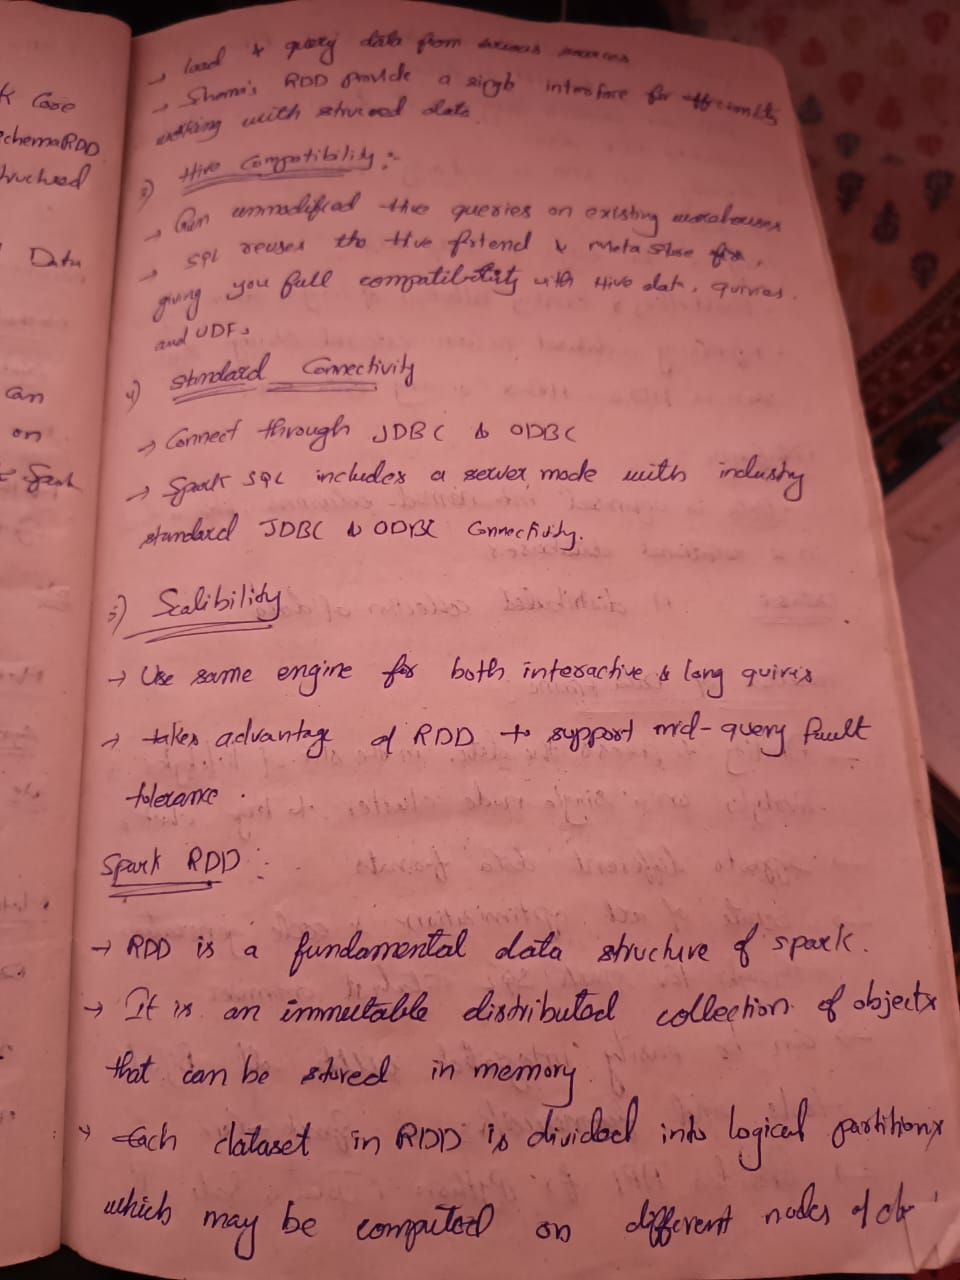 K Case
SchemaRDD
tructured
Data
can
on
Spark
→ load & query data from various sources
→ Shema's RDD provide a singb interface for efficiently
working with structured data
3) Hive Compatibility :-
→ Run unmodified Hive queries on existing warehouses
→ SQL reuses the Hive frtend & Meta store
giving you full compatibility with Hive data, quiries.
and UDFs
4) Standard Connectivity
→ Connect through JDBC & ODBC
→ Spark SQL includes a server mode with industry
standard JDBC & ODBC Connectivity.
5) Scalibility
→ Use same engine for both interactive & long quiries
→ takes advantage of RDD to support mid-query fault
tolerance .
Spark RDD :-
→ RDD is a fundamental data structure of spark.
→ It is an immutable distributed collection of objects
that can be stored in memory
→ Each dataset in RDD is divided into logical partitions
which may be computed on different nodes of